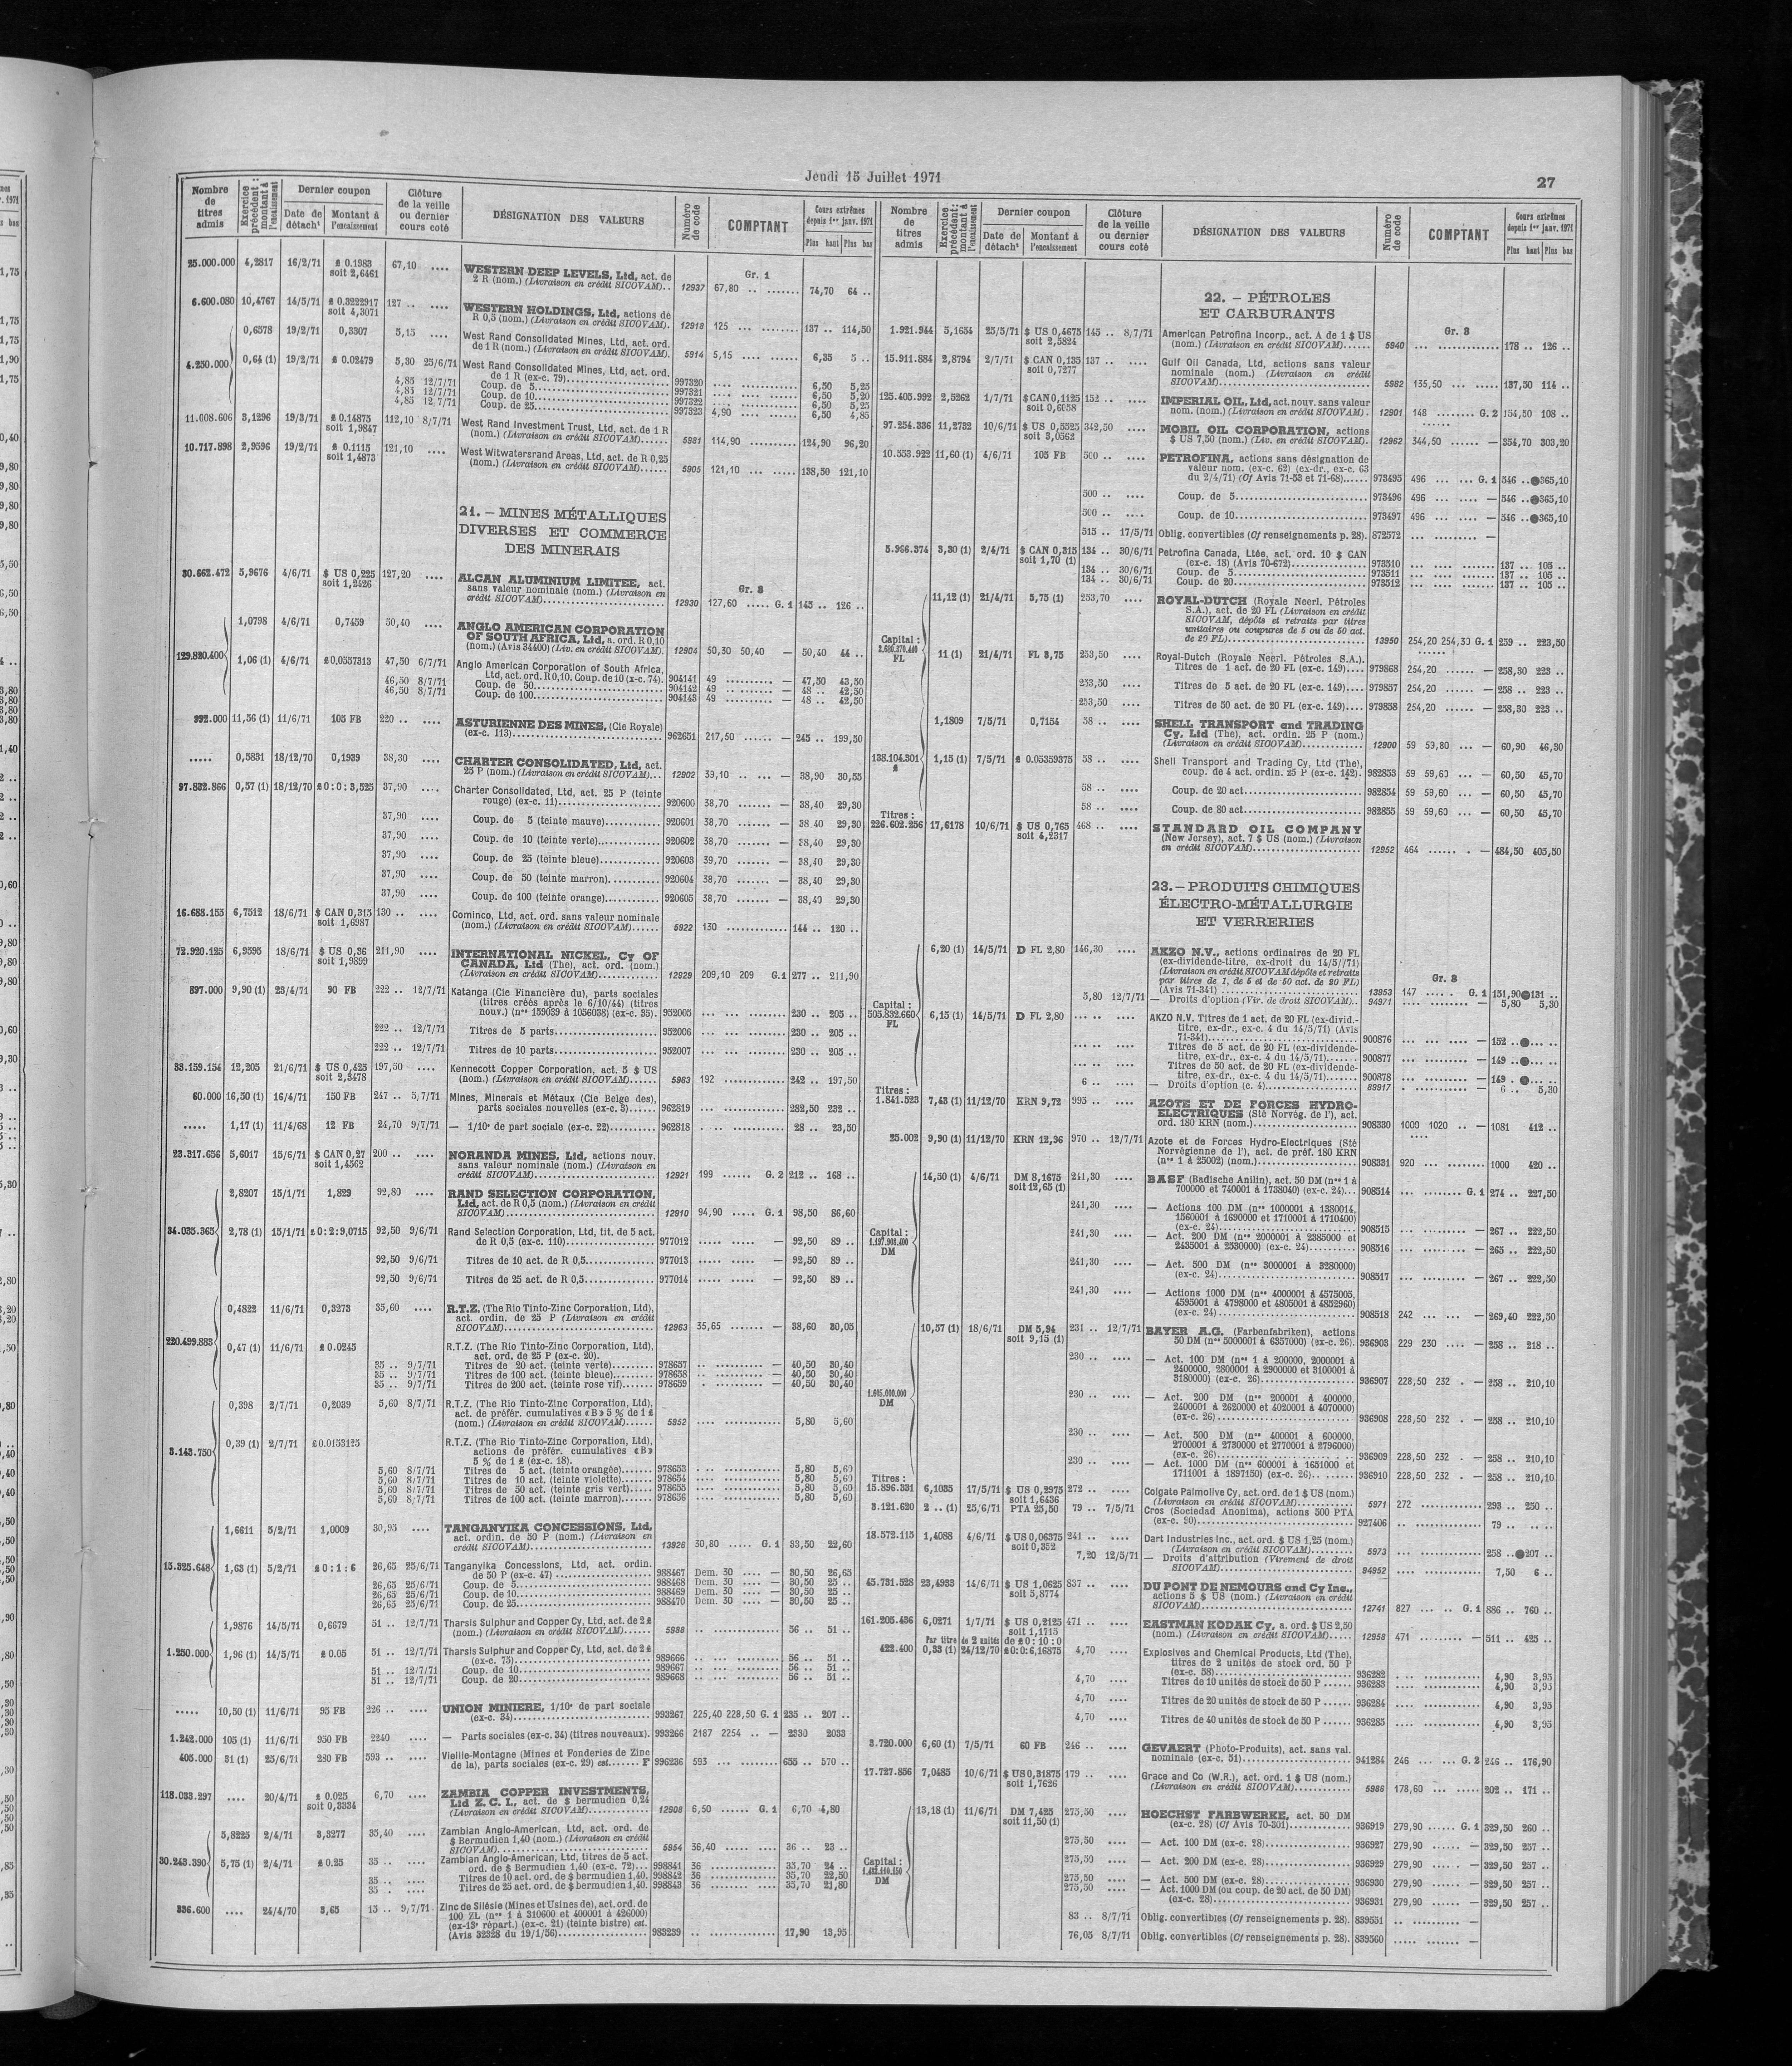 Jeudi 15 Juillet 1971
27
Nombre de titres admis
Exercice précédent : montant à l'encaissement
Dernier coupon
Date de détacht
Montant à l'encaissement
Clôture de la veille ou dernier cours coté
DÉSIGNATION DES VALEURS
Numéro de code
COMPTANT
Cours extrêmes depuis 1er janv. 1971
Plus haut Plus bas
Gr. 1
25.000.000 4,2817 16/2/71 £ 0.1983 67,10 .... WESTERN DEEP LEVELS, Ltd, act. de
soit 2,6461 2 R (nom.) (Livraison en crédit SICOVAM).. 12937 67,80 .. ....... 74,70 64 ..
6.600.080 10,4767 14/5/71 £ 0.3222917 127 .. .... WESTERN HOLDINGS, Ltd, actions de
soit 4,3071 R 0,5 (nom.) (Livraison en crédit SICOVAM). 12918 125 ... ......... 137 .. 114,50
0,6578 19/2/71 0,3307 5,15 .... West Rand Consolidated Mines, Ltd, act. ord.
de 1 R (nom.) (Livraison en crédit SICOVAM). 5914 5,15 .... ....... 6,35 5 ..
4.250.000 0,64 (1) 19/2/71 £ 0.02479 5,30 25/6/71 West Rand Consolidated Mines, Ltd, act. ord.
de 1 R (ex-c. 79) 997320 6,50 5,25
4,85 12/7/71 Coup. de 5 997321 6,50 5,20
4,85 12/7/71 Coup. de 10 997322 6,50 5,25
4,85 12/7/71 Coup. de 25 997323 4,90 6,50 4,85
11.008.606 3,1296 19/3/71 £ 0.14875 112,10 8/7/71 West Rand Investment Trust, Ltd, act. de 1 R
soit 1,9847 (nom.) (Livraison en crédit SICOVAM)...... 5981 114,90 .......... 124,90 96,20
10.717.898 2,9596 19/2/71 £ 0.1115 121,10 .... West Witwatersrand Areas, Ltd, act. de R 0,25
soit 1,4873 (nom.) (Livraison en crédit SICOVAM)...... 5905 121,10 ... ...... 138,50 121,10
21. – MINES MÉTALLIQUES
DIVERSES ET COMMERCE
DES MINERAIS
Gr. 3
30.662.472 5,9676 4/6/71 $ US 0,225 127,20 .... ALCAN ALUMINIUM LIMITEE, act.
soit 1,2426 sans valeur nominale (nom.) (Livraison en
crédit SICOVAM) 12930 127,60 ..... G. 1 145 .. 126 ..
1,0798 4/6/71 0,7459 50,40 .... ANGLO AMERICAN CORPORATION
OF SOUTH AFRICA, Ltd, a. ord. R 0,10
(nom.) (Avis 34400) (Liv. en crédit SICOVAM). 12904 50,30 50,40 — 50,40 44 ..
129.820.400 1,06 (1) 4/6/71 £0,0557313 47,50 6/7/71 Anglo American Corporation of South Africa,
Ltd, act. ord. R 0,10. Coup. de 10 (x-c. 74). 904141 49 .......... — 47,50 43,50
46,50 8/7/71 Coup. de 50 904142 49 — 48 .. 42,50
46,50 8/7/71 Coup. de 100 904143 49 — 48 .. 42,50
992.000 11,56 (1) 11/6/71 105 FB 220 .. .... ASTURIENNE DES MINES, (Cie Royale)
(ex-c. 113) 962651 217,50 ...... — 245 .. 199,50
..... 0,5831 18/12/70 0,1939 38,30 .... CHARTER CONSOLIDATED, Ltd, act.
25 P (nom.) (Livraison en crédit SICOVAM)... 12902 39,10 .. ... — 38,90 30,55
97.832.866 0,57 (1) 18/12/70 £0:0:3,525 37,90 .... Charter Consolidated, Ltd, act. 25 P (teinte
rouge) (ex-c. 11) 920600 38,70 ....... — 38,40 29,30
37,90 .... Coup. de 5 (teinte mauve) 920601 38,70 ....... — 38.40 29,30
37,90 .... Coup. de 10 (teinte verte) 920602 38,70 ....... — 38,40 29,30
37,90 .... Coup. de 25 (teinte bleue) 920603 39,70 ....... — 38,40 29,30
37,90 .... Coup. de 50 (teinte marron) 920604 38,70 ....... — 38,40 29,30
37,90 .... Coup. de 100 (teinte orange) 920605 38,70 ....... — 38,40 29,30
16.688.155 6,7512 18/6/71 $ CAN 0,315 130 .. .... Cominco, Ltd, act. ord. sans valeur nominale
soit 1,6987 (nom.) (Livraison en crédit SICOVAM)...... 5922 130 ............. 144 .. 120 ..
72.920.125 6,9595 18/6/71 $ US 0,36 211,90 .... INTERNATIONAL NICKEL, Cy OF
soit 1,9899 CANADA, Ltd (The), act. ord. (nom.)
(Livraison en crédit SICOVAM) 12929 209,10 209 G.1 277 .. 211,90
897.000 9,90 (1) 23/4/71 90 FB 222 .. 12/7/71 Katanga (Cie Financière du), parts sociales
(titres créés après le 6/10/44) (titres
nouv.) (nos 159039 à 1056038) (ex-c. 35). 952005 ... ... ....... 230 .. 205 ..
222 .. 12/7/71 Titres de 5 parts 952006 230 .. 205 ..
222 .. 12/7/71 Titres de 10 parts 952007 230 .. 205 ..
33.159.154 12,205 21/6/71 $ US 0,425 197,50 .... Kennecott Copper Corporation, act. 5 $ US
soit 2,3478 (nom.) (Livraison en crédit SICOVAM)...... 5963 192 ............ 242 .. 197,50
60.000 16,50 (1) 16/4/71 150 FB 247 .. 5/7/71 Mines, Minerais et Métaux (Cie Belge des),
parts sociales nouvelles (ex-c. 3) 962819 282,50 232 ..
..... 1,17 (1) 11/4/68 12 FB 24,70 9/7/71 — 1/10e de part sociale (ex-c. 22) 962818 28 .. 23,50
23.317.656 5,6017 15/6/71 $ CAN 0,27 200 .. .... NORANDA MINES, Ltd, actions nouv.
soit 1,4562 sans valeur nominale (nom.) (Livraison en
crédit SICOVAM) 12921 199 G. 2 212 .. 168 ..
2,8207 15/1/71 1,829 92,80 .... RAND SELECTION CORPORATION,
Ltd, act. de R 0,5 (nom.) (Livraison en crédit
SICOVAM) 12910 94,90 .... G. 1 98,50 86,60
34.035.365 2,78 (1) 15/1/71 £0:2:9,0715 92,50 9/6/71 Rand Selection Corporation, Ltd, tit. de 5 act.
de R 0,5 (ex-c. 110) 977012 — 92,50 89 ..
92,50 9/6/71 Titres de 10 act. de R 0,5 977013 — 92,50 89 ..
92,50 9/6/71 Titres de 25 act. de R 0,5 977014 — 92,50 89 ..
0,4822 11/6/71 0,3273 35,60 .... R.T.Z. (The Rio Tinto-Zinc Corporation, Ltd),
act. ordin. de 25 P (Livraison en crédit
SICOVAM) 12963 35,65 — 38,60 30,05
220.499.883 0,47 (1) 11/6/71 £ 0.0245 R.T.Z. (The Rio Tinto-Zinc Corporation, Ltd),
act. ord. de 25 P (ex-c. 20).
35 .. 9/7/71 Titres de 20 act. (teinte verte) 978657 — 40,50 30,40
35 .. 9/7/71 Titres de 100 act. (teinte bleue) 978658 — 40,50 30,40
35 .. 9/7/71 Titres de 200 act. (teinte rose vif) 978659 — 40,50 30,40
0,398 2/7/71 0,2039 5,60 8/7/71 R.T.Z. (The Rio Tinto-Zinc Corporation, Ltd),
act. de préfér. cumulatives «B» 5 % de 1 £
(nom.) (Livraison en crédit SICOVAM)...... 5952 5,80 5,60
3.143.750 0,39 (1) 2/7/71 £0.0153125 R.T.Z. (The Rio Tinto-Zinc Corporation, Ltd),
actions de préfér. cumulatives «B»
5 % de 1 £ (ex-c. 18).
5,60 8/7/71 Titres de 5 act. (teinte orangée) 978653 5,80 5,60
5,60 8/7/71 Titres de 10 act. (teinte violette) 978654 5,80 5,60
5,60 8/7/71 Titres de 50 act. (teinte gris vert) 978655 5,80 5,60
5,60 8/7/71 Titres de 100 act. (teinte marron) 978656 5,80 5,60
1,6611 5/2/71 1,0009 30,95 .... TANGANYIKA CONCESSIONS, Ltd,
act. ordin. de 50 P (nom.) (Livraison en
crédit SICOVAM) 13926 30,80 ..... G. 1 33,50 22,60
15.325.648 1,63 (1) 5/2/71 £0:1:6 26,65 25/6/71 Tanganyika Concessions, Ltd, act. ordin.
de 50 P (ex-c. 47) 988467 Dem. 30 .... — 30,50 26,65
26,65 25/6/71 Coup. de 5 988468 Dem. 30 .... — 30,50 25 ..
26,65 25/6/71 Coup. de 10 988469 Dem. 30 .... — 30,50 25 ..
26,65 25/6/71 Coup. de 25 988470 Dem. 30 .... — 30,50 25 ..
1,9876 14/5/71 0,6679 51 .. 12/7/71 Tharsis Sulphur and Copper Cy, Ltd, act. de 2 £
(nom.) (Livraison en crédit SICOVAM)...... 5988 56 .. 51 ..
1.250.000 1,96 (1) 14/5/71 £ 0.05 51 .. 12/7/71 Tharsis Sulphur and Copper Cy, Ltd, act. de 2 £
(ex-c. 75) 989666 56 .. 51 ..
51 .. 12/7/71 Coup. de 10 989667 56 .. 51 ..
51 .. 12/7/71 Coup. de 20 989668 56 .. 51 ..
..... 10,50 (1) 11/6/71 95 FB 226 .. .... UNION MINIERE, 1/10e de part sociale
(ex-c. 34) 993267 225,40 228,50 G. 1 235 .. 207 ..
1.242.000 105 (1) 11/6/71 950 FB 2240 .... — Parts sociales (ex-c. 34) (titres nouveaux). 993266 2187 2254 .. — 2330 2033
405.000 31 (1) 25/6/71 280 FB 593 .. .... Vieille-Montagne (Mines et Fonderies de Zinc
de la), parts sociales (ex-c. 29) est....... F 996236 593 655 .. 570 ..
118.033.297 .... 20/4/71 £ 0.025 6,70 .... ZAMBIA COPPER INVESTMENTS,
soit 0,3334 Ltd Z. C. I., act. de $ bermudien 0,24
(Livraison en crédit SICOVAM) 12908 6,50 ...... G. 1 6,70 4,80
5,8225 2/4/71 3,3277 35,40 .... Zambian Anglo-American, Ltd, act. ord. de
$ Bermudien 1,40 (nom.) (Livraison en crédit
SICOVAM) 5954 36,40 36 .. 23 ..
30.243.390 5,75 (1) 2/4/71 £ 0.25 35 .. .... Zambian Anglo-American, Ltd, titres de 5 act.
ord. de $ Bermudien 1,40 (ex-c. 72)... 998841 36 35,70 24 ..
35 .. Titres de 10 act. ord. de $ bermudien 1,40. 998842 36 35,70 22,50
35 . Titres de 25 act. ord. de $ bermudien 1,40. 998843 36 35,70 21,80
336.600 .... 24/4/70 3,65 15 .. 9/7/71 Zinc de Silésie (Mines et Usines de), act. ord. de
100 ZL (nos 1 à 310600 et 400001 à 426000)
(ex-13e répart.) (ex-c. 21) (teinte bistre) est.
(Avis 32328 du 19/1/56) 983239 17,90 13,95
Nombre de titres admis
Exercice précédent : montant à l'encaissement
Dernier coupon
Date de détacht
Montant à l'encaissement
Clôture de la veille ou dernier cours coté
DÉSIGNATION DES VALEURS
Numéro de code
COMPTANT
Cours extrêmes depuis 1er janv. 1971
Plus haut Plus bas
22. – PÉTROLES
ET CARBURANTS
Gr. 3
1.921.944 5,1634 25/5/71 $ US 0,4675 145 .. 8/7/71 American Petrofina Incorp., act. A de 1 $ US
soit 2,5824 (nom.) (Livraison en crédit SICOVAM)...... 5940 178 .. 126 ..
15.911.884 2,8794 2/7/71 $ CAN 0,135 137 .. .... Gulf Oil Canada, Ltd, actions sans valeur
soit 0,7277 nominale (nom.) (Livraison en crédit
SICOVAM) 5982 135,50 ... ...... 137,50 114 ..
125.405.992 2,5262 1/7/71 $CAN 0,1125 152 .. .... IMPERIAL OIL, Ltd, act. nouv. sans valeur
soit 0,6058 nom. (nom.) (Livraison en crédit SICOVAM) . 12901 148 ........ G. 2 154,50 108 ..
97.254.336 11,2732 10/6/71 $ US 0,5525 342,50 .... MOBIL OIL CORPORATION, actions
soit 3,0562 $ US 7,50 (nom.) (Liv. en crédit SICOVAM). 12962 344,50 ...... — 354,70 303,20
10.553.922 11,60 (1) 4/6/71 105 FB 500 .. .... PETROFINA, actions sans désignation de
valeur nom. (ex-c. 62) (ex-dr., ex-c. 63
du 2/4/71) (Cf Avis 71-53 et 71-68) 973495 496 ... ... G. 1 546 ..●365,10
500 .. .... Coup. de 5 973496 496 ... .... — 546 ..●365,10
500 .. .... Coup. de 10 973497 496 ... .... — 546 ..●365,10
515 .. 17/5/71 Oblig. convertibles (Cf renseignements p. 28). 872572 ... ......... —
5.966.374 3,30 (1) 2/4/71 $ CAN 0,315 134 .. 30/6/71 Petrofina Canada, Ltée, act. ord. 10 $ CAN
soit 1,70 (1) (ex-c. 18) (Avis 70-672) 973510 137 .. 105 ..
134 .. 30/6/71 Coup. de 5 973511 137 .. 105 ..
134 .. 30/6/71 Coup. de 20 973512 137 .. 105 ..
11,12 (1) 21/4/71 5,75 (1) 253,70 .... ROYAL-DUTCH (Royale Neerl. Pétroles
S.A.), act. de 20 FL (Livraison en crédit
SICOVAM, dépôts et retraits par titres
unitaires ou coupures de 5 ou de 50 act.
de 20 FL) 13950 254,20 254,30 G. 1 259 .. 223,50
Capital :
2.680.270.440
FL
11 (1) 21/4/71 FL 3,75 253,50 .... Royal-Dutch (Royale Neerl. Pétroles S.A.).
Titres de 1 act. de 20 FL (ex-c. 149).... 979868 254,20 ...... — 258,30 223 ..
253,50 .... Titres de 5 act. de 20 FL (ex-c. 149).... 979857 254,20 ...... — 258 .. 223 ..
253,50 .... Titres de 50 act. de 20 FL (ex-c. 149).... 979858 254,20 ...... — 258,30 223 ..
1,1809 7/5/71 0,7154 58 .. .... SHELL TRANSPORT and TRADING
Cy, Ltd (The), act. ordin. 25 P (nom.)
(Livraison en crédit SICOVAM) 12900 59 59,80 ... — 60,90 46,30
138.104.301
£
1,15 (1) 7/5/71 £ 0.05359375 58 .. .... Shell Transport and Trading Cy, Ltd (The),
coup. de 4 act. ordin. 25 P (ex-c. 142). 982853 59 59,60 ... — 60,50 45,70
58 .. .... Coup. de 20 act. 982854 59 59,60 ... — 60,50 45,70
58 .. .... Coup. de 80 act. 982855 59 59,60 ... — 60,50 45,70
Titres :
226.602.256 17,6178 10/6/71 $ US 0,765 468 .. .... STANDARD OIL COMPANY
soit 4,2317 (New Jersey), act. 7 $ US (nom.) (Livraison
en crédit SICOVAM) 12952 464 ...... . — 484,50 405,50
23. – PRODUITS CHIMIQUES
ÉLECTRO-MÉTALLURGIE
ET VERRERIES
Gr. 3
6,20 (1) 14/5/71 D FL 2,80 146,30 .... AKZO N.V., actions ordinaires de 20 FL
(ex-dividende-titre, ex-droit du 14/5//71)
(Livraison en crédit SICOVAM dépôts et retraits
par titres de 1, de 5 et de 50 act. de 20 FL)
(Avis 71-341) 13953 147 ..... . G. 1 151,90●131 ..
5,80 12/7/71 — Droits d'option (Vir. de droit SICOVAM).. 94971 5,80 5,30
Capital :
505.832.660
FL
6,15 (1) 14/5/71 D FL 2,80 ... .. .... AKZO N.V. Titres de 1 act. de 20 FL (ex-divid.-
titre, ex-dr., ex-c. 4 du 14/5/71) (Avis
71-341) 900876 — 152 ..●... ..
Titres de 5 act. de 20 FL (ex-dividende-
titre, ex-dr., ex-c. 4 du 14/5/71) 900877 — 149 ..●... ..
Titres de 50 act. de 20 FL (ex-dividende-
titre, ex-dr., ex-c. 4 du 14/5/71) 900878 — 149 ..●... ..
6 .. .... — Droits d'option (c. 4) 89917 6 .. 5,30
Titres :
1.841.523 7,43 (1) 11/12/70 KRN 9,72 995 .. .... AZOTE ET DE FORCES HYDRO-
ELECTRIQUES (Sté Norvég. de l'), act.
ord. 180 KRN (nom.) 908330 1000 1020 .. — 1081 412 ..
25.002 9,90 (1) 11/12/70 KRN 12,96 970 .. 12/7/71 Azote et de Forces Hydro-Electriques (Sté
Norvégienne de l'), act. de préf. 180 KRN
(nos 1 à 25002) (nom.) 908331 920 1000 420 ..
14,50 (1) 4/6/71 DM 8,1675 241,30 .... BASF (Badische Anilin), act. 50 DM (nos 1 à
soit 12,65 (1) 700000 et 740001 à 1738040) (ex-c. 24)... 908514 G. 1 274 .. 227,50
241,30 .... — Actions 100 DM (nos 1000001 à 1380014,
1560001 à 1690000 et 1710001 à 1710400)
(ex-c. 24) 908515 — 267 .. 222,50
Capital :
1.197.908.400
DM
241,30 .... — Act. 200 DM (nos 2000001 à 2385000 et
2435001 à 2530000) (ex-c. 24) 908516 — 265 .. 222,50
241,30 .... — Act. 500 DM (nos 3000001 à 3280000)
(ex-c. 24) 908517 — 267 .. 222,50
241,30 .... — Actions 1000 DM (nos 4000001 à 4575005,
4595001 à 4798000 et 4805001 à 4852960)
(ex-c. 24) 908518 242 — 269,40 222,50
10,57 (1) 18/6/71 DM 5,94 231 .. 12/7/71 BAYER A.G. (Farbenfabriken), actions
soit 9,15 (1) 50 DM (nos 5000001 à 6357000) (ex-c. 26). 936903 229 230 .... — 258 .. 218 ..
230 .. .... — Act. 100 DM (nos 1 à 200000, 2000001 à
2400000, 2800001 à 2900000 et 3100001 à
3180000) (ex-c. 26) 936907 228,50 232 . — 258 .. 210,10
1.605.000.000
DM
230 .. .... — Act. 200 DM (nos 200001 à 400000,
2400001 à 2620000 et 4020001 à 4070000)
(ex-c. 26) 936908 228,50 232 . — 258 .. 210,10
230 .. .... — Act. 500 DM (nos 400001 à 600000,
2700001 à 2730000 et 2770001 à 2796000)
(ex-c. 26) 936909 228,50 232 . — 258 .. 210,10
230 .. .... — Act. 1000 DM (nos 600001 à 1651000 et
1711001 à 1897150) (ex-c. 26) 936910 228,50 232 . — 258 .. 210,10
Titres :
15.896.331 6,1035 17/5/71 $ US 0,2975 272 .. .... Colgate Palmolive Cy, act. de 1 $ US (nom.)
soit 1,6436 (Livraison en crédit SICOVAM) 5971 272 293 .. 250 ..
3.121.620 2 .. (1) 25/6/71 PTA 25,50 79 .. 7/5/71 Cros (Sociedad Anonima), actions 500 PTA
(ex-c. 90) 927406 79 .. .. ..
18.572.115 1,4088 4/6/71 $ US 0,06375 241 .. .... Dart Industries Inc., act. ord. $ US 1,25 (nom.)
soit 0,352 (Livraison en crédit SICOVAM) 5973 258 ..●207 ..
7,20 12/5/71 — Droits d'attribution (Virement de droit
SICOVAM) 94952 7,50 6 ..
45.731.528 23,4933 14/6/71 $ US 1,0625 837 .. .... DU PONT DE NEMOURS and Cy Inc.,
soit 5,8774 actions 5 $ US (nom.) (Livraison en crédit
SICOVAM) 12741 827 ... .. G. 1 886 .. 760 ..
161.205.436 6,0271 1/7/71 $ US 0,2125 471 .. .... EASTMAN KODAK Cy, a. ord. $ US 2,50
soit 1,1715 (nom.) (Livraison en crédit SICOVAM)..... 12958 471 — 511 .. 425 ..
Par titre de 2 unités de £ 0 : 10 : 0
422.400 0,33 (1) 24/12/70 £0:0:6,16875 4,70 .... Explosives and Chemical Products, Ltd (The),
titres de 2 unités de stock ord. 50 P
(ex-c. 58) 936282 4,90 3,95
4,70 Titres de 10 unités de stock de 50 P 936283 4,90 3,95
4,70 .... Titres de 20 unités de stock de 50 P 936284 4,90 3,95
4,70 .... Titres de 40 unités de stock de 50 P 936285 4,90 3,95
3.720.000 6,60 (1) 7/5/71 60 FB 246 .. .... GEVAERT (Photo-Produits), act. sans val.
nominale (ex-c. 51) 941284 246 ... ... G. 2 246 .. 176,90
17.727.856 7,0485 10/6/71 $ US 0,31875 179 .. .... Grace and Co (W.R.), act. ord. 1 $ US (nom.)
soit 1,7626 (Livraison en crédit SICOVAM) 5986 178,60 202 .. 171 ..
13,18 (1) 11/6/71 DM 7,425 275,50 .... HOECHST FARBWERKE, act. 50 DM
soit 11,50 (1) (ex-c. 28) (Cf Avis 70-301) 936919 279,90 ...... G. 1 329,50 260 ..
275,50 .... — Act. 100 DM (ex-c. 28) 936927 279,90 ...... — 329,50 257 ..
Capital :
1.482.110.150
DM
275,50 .... — Act. 200 DM (ex-c. 28) 936929 279,90 ...... — 329,50 257 ..
275,50 .... — Act. 500 DM (ex-c. 28) 936930 279,90 ...... — 329,50 257 ..
275,50 .... — Act. 1000 DM (ou coup. de 20 act. de 50 DM)
(ex-c. 28) 936931 279,90 ...... — 329,50 257 ..
83 .. 8/7/71 Oblig. convertibles (Cf renseignements p. 28). 839551 —
76,05 8/7/71 Oblig. convertibles (Cf renseignements p. 28). 839560 —